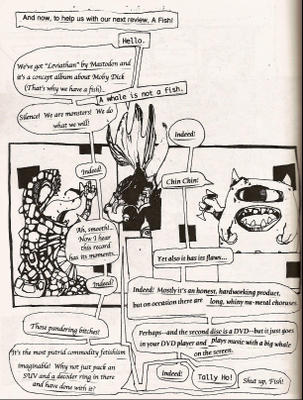 And now, to help us with our next review, A Fish!
Hello.
We've got "Leviathan" by Mastodon and
it's a concept album about Moby Dick
(That's why we have a fish)..
A whale is not a fish.
Silence! We are monsters! We do
what we will!
Indeed!
Indeed!
Chin Chin!
Ah, smooth!..
Now I hear
this record
has its moments...
Yet also it has its flaws...
Indeed!
Indeed! Mostly it's an honest, hardworking product,
but on occasion there are long, whiny nu-metal choruses.
Those pandering bitches!
Perhaps--and the second disc is a DVD--but it just goes
in your DVD player and plays music with a big whale
on the screen.
It's the most putrid commodity fetishism
imaginable! Why not just pack an
SUV and a decoder ring in there
and have done with it?
Indeed!
Tally Ho!
Shut up, Fish!